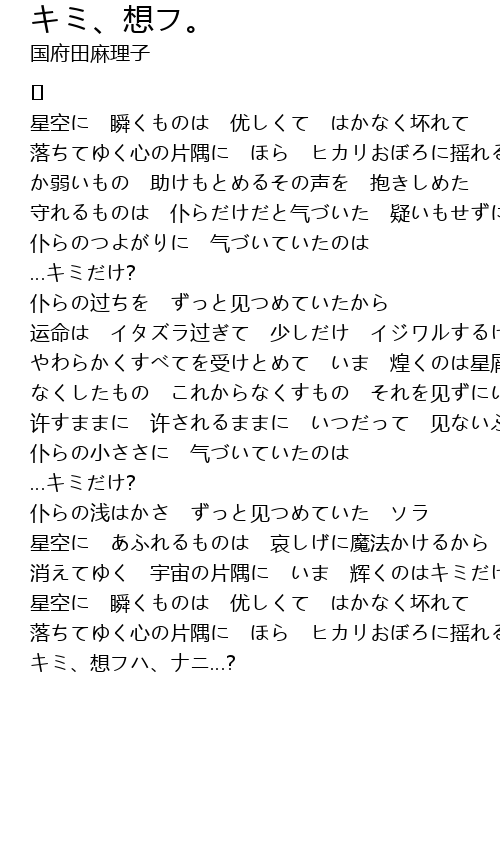 キミ、想フ。
国府田麻理子
[]
星空に　瞬くものは　优しくて　はかなく坏れて
落ちてゆく心の片隅に　ほら　ヒカリおぼろに揺れる
か弱いもの　助けもとめるその声を　抱きしめた
守れるものは　仆らだけだと气づいた　疑いもせずに
仆らのつよがりに　气づいていたのは
...キミだけ?
仆らの过ちを　ずっと见つめていたから
运命は　イタズラ过ぎて　少しだけ　イジワルするけ
やわらかくすべてを受けとめて　いま　煌くのは星屑
なくしたもの　これからなくすもの　それを见ずにい
许すままに　许されるままに　いつだって　见ないふ
仆らの小ささに　气づいていたのは
...キミだけ?
仆らの浅はかさ　ずっと见つめていた　ソラ
星空に　あふれるものは　哀しげに魔法かけるから
消えてゆく　宇宙の片隅に　いま　辉くのはキミだけ
星空に　瞬くものは　优しくて　はかなく坏れて
落ちてゆく心の片隅に　ほら　ヒカリおぼろに揺れる
キミ、想フハ、ナニ...?